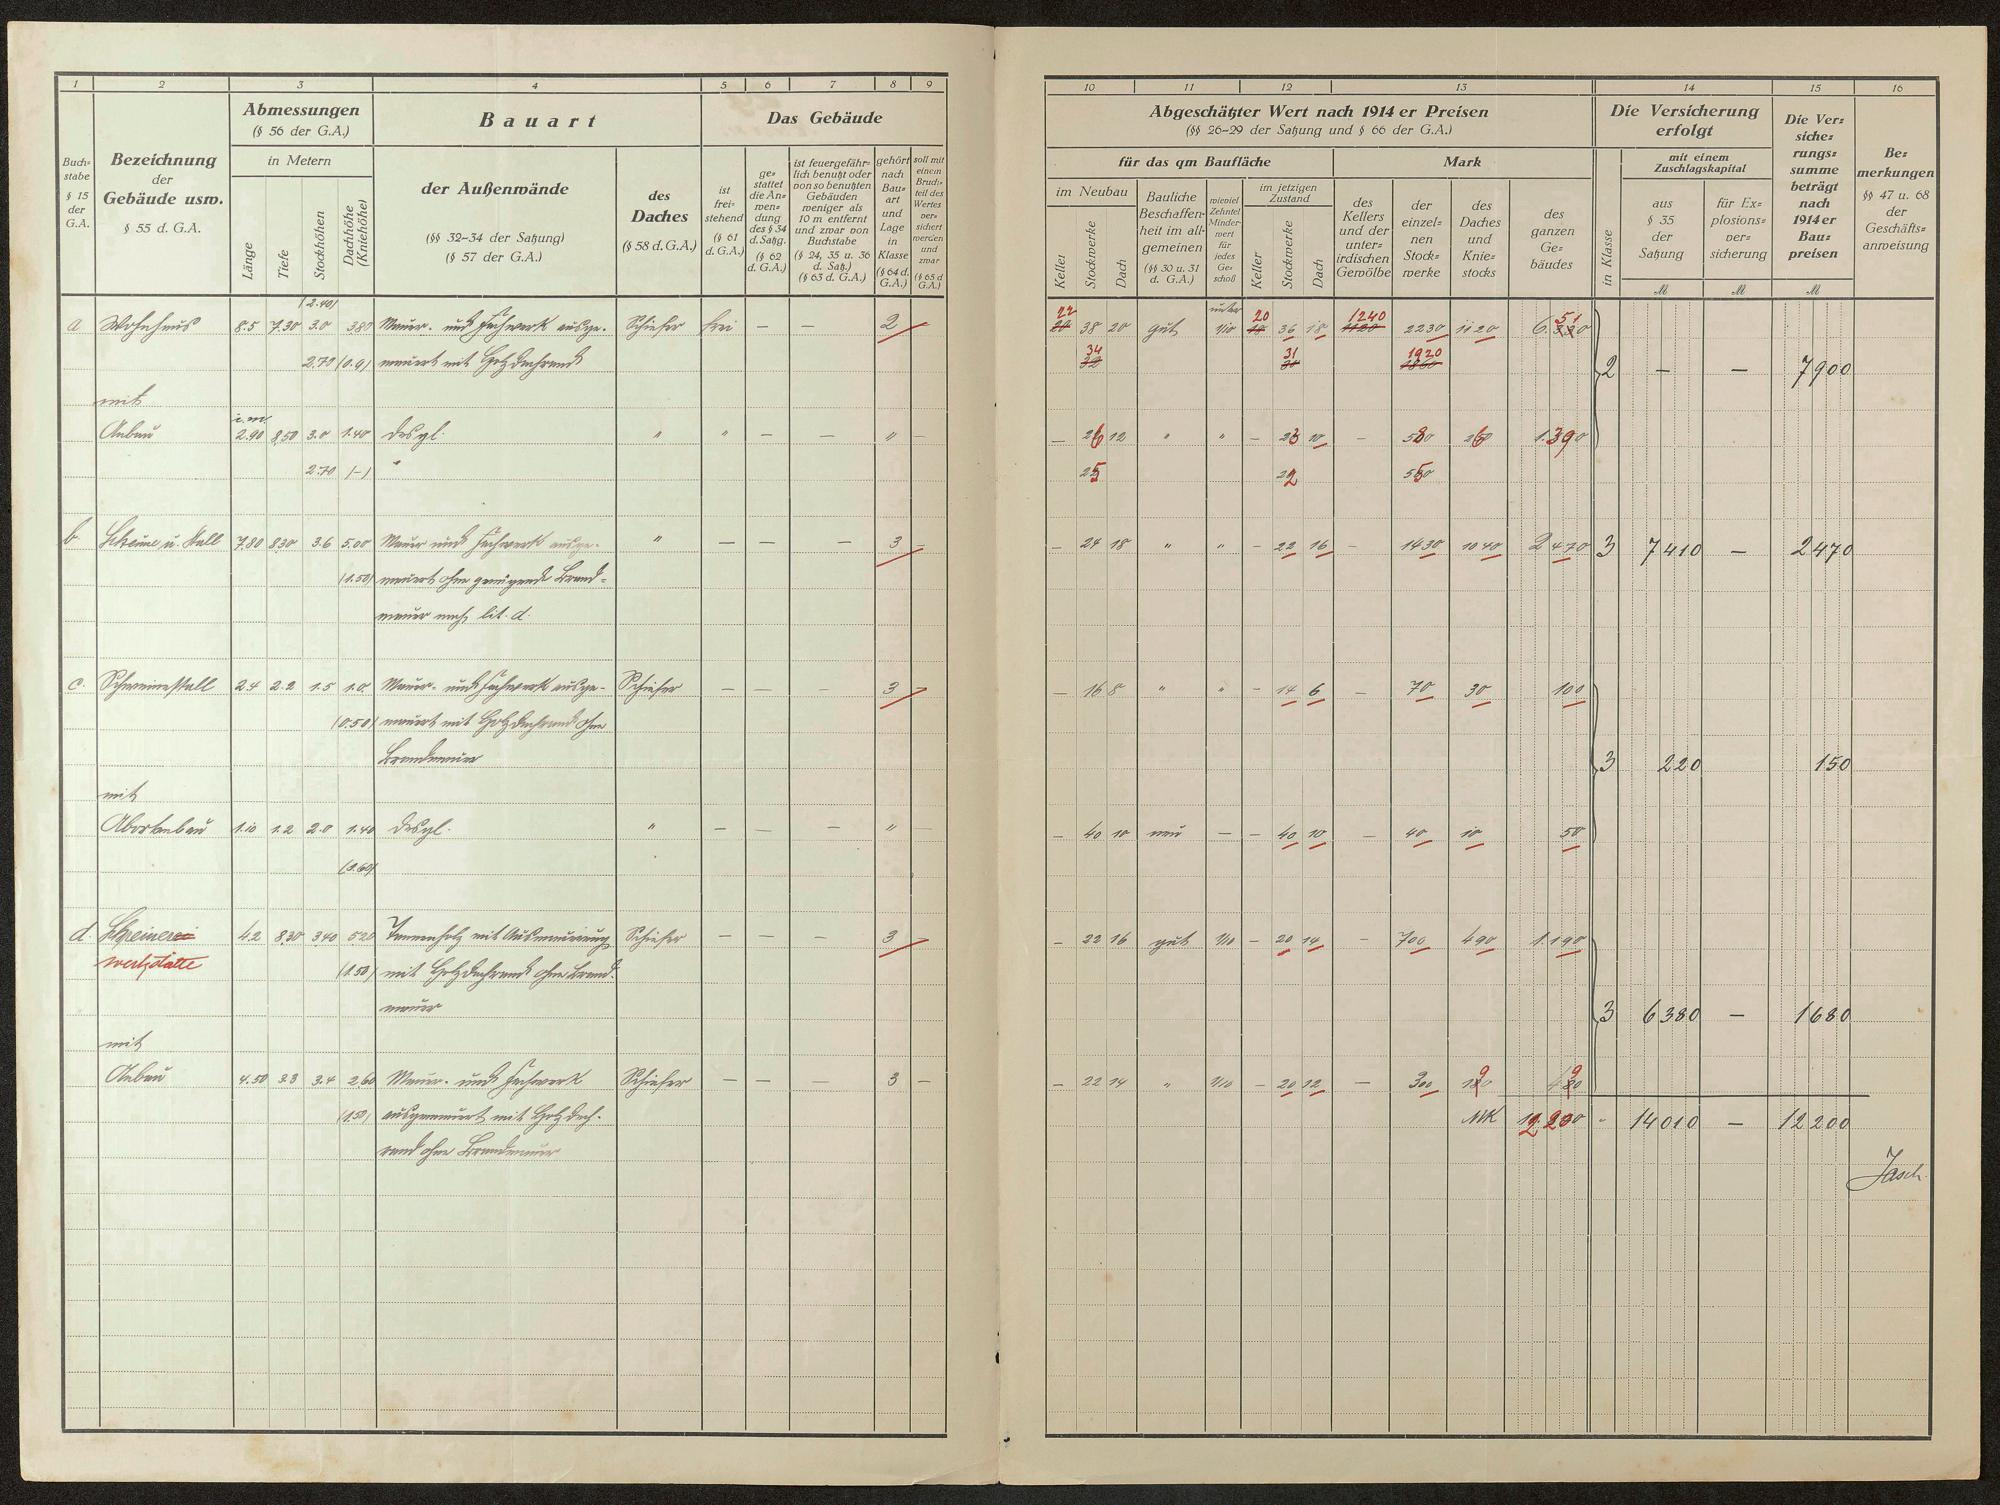 1 2 3 4 5 6 7 8 9
Buch=
stabe
§ 15
der
G.A.
Bezeichnung
der
Gebäude usw.
§ 55 d. G.A.
Abmessungen
(§ 56 der G.A.)
in Metern
Länge
Tiefe
Stockhöhen
Dachhöhe
(Kniehöhe)
Bauart
der Außenwände
(§§ 32-34 der Satzung)
(§ 57 der G.A.)
des
Daches
(§ 58 d. G.A.)
Das Gebäude
ist
frei=
stehend
(§ 61
d. G.A.)
ge=
stattet
die An=
wen=
dung
des § 34
d. Satzg.
(§ 62
d. G.A.)
ist feuergefähr=
lich benutzt oder
von so benutzten
Gebäuden
weniger als
10 m entfernt
und zwar von
Buchstabe
(§ 24, 35 u. 36
d. Satz.)
(§ 63 d. G.A.)
gehört
nach
Bau=
art
und
Lage
in
Klasse
(§ 64 d.
G.A.)
soll mit
einem
Bruch=
teil des
Wertes
ver=
sichert
werden
und
zwar
(§ 65 d.
G.A.)
(2.40)
a Wohnhaus 8.5 7.30 3.0 380 Mauer- und Fachwerk ausge- Schiefer frei — — 2 —
2.70 (0.9) mauert mit Holzdachrand
mit
i.M.
Anbau 2.90 8.50 3.0 1.40 desgl. " " — — " —
2.70 (-) "
b. Scheune u. Stall 7.80 8.30 3.6 5.00 Mauer und Fachwerk ausge- " — — — 3 —
(1.50) mauert ohne genügende Brand-
mauer nach lit. d.
c. Schweinestall 2.4 2.2 1.5 1.0 Mauer- und Fachwerk ausge- Schiefer — — — 3 —
(0.50) mauert mit Holzdachrand ohne
Brandmauer
mit
Abortanbau 1.10 1.2 2.0 1.40 desgl. " — — — " —
(0.60)
d. Schreinerei 4.2 8.30 3.40 5.20 Tannenholz mit Ausmauerung Schiefer — — — 3 —
werkstätte (1.50) mit Holzdachrand ohne Brand-
mauer
mit
Anbau 4.50 3.3 3.4 2.60 Mauer- und Fachwerk Schiefer — — — 3 —
(1.50) ausgemauert mit Holzdach-
rand ohne Brandmauer
10 11 12 13 14 15 16
Abgeschätzter Wert nach 1914 er Preisen
(§§ 26-29 der Satzung und § 66 der G.A.)
für das qm Baufläche
im Neubau
Keller
Stockwerke
Dach
Bauliche
Beschaffen=
heit im all=
gemeinen
(§§ 30 u. 31
d. G.A.)
wieviel
Zehntel
Minder=
wert
für
jedes
Ge=
schoß
im jetzigen
Zustand
Keller
Stockwerke
Dach
Mark
des
Kellers
und der
unter=
irdischen
Gewölbe
der
einzel=
nen
Stock=
werke
des
Daches
und
Knie=
stocks
des
ganzen
Ge=
bäudes
Die Versicherung
erfolgt
in Klasse
mit einem
Zuschlagskapital
aus
§ 35
der
Satzung
für Ex=
plosions=
ver=
sicherung
Die Ver=
siche=
rungs=
summe
beträgt
nach
1914 er
Bau=
preisen
Be=
merkungen
§§ 47 u. 68
der
Geschäfts=
anweisung
M M M
22 unter 20 1240 51
20 38 20 gut 1/10 18 36 18 1120 2230 1120
34 31 1920
32 30 1860 2 — — 7900
— 26 12 " " — 23 10 — 580 260 1.390
25 22 550
— 24 18 " " — 22 16 — 1430 1040 2470 3 7410 — 2470
— 16 8 " " — 14 6 — 70 30 100
3 220 150
— 40 10 neu — — 40 10 — 40 10 50
— 22 16 gut 1/10 — 20 14 — 700 490 1.190
3 6380 — 1680
— 22 14 " 1/10 — 20 12 — 300 190 490
MK 12.200 - 14010 — 12200
Jasch.